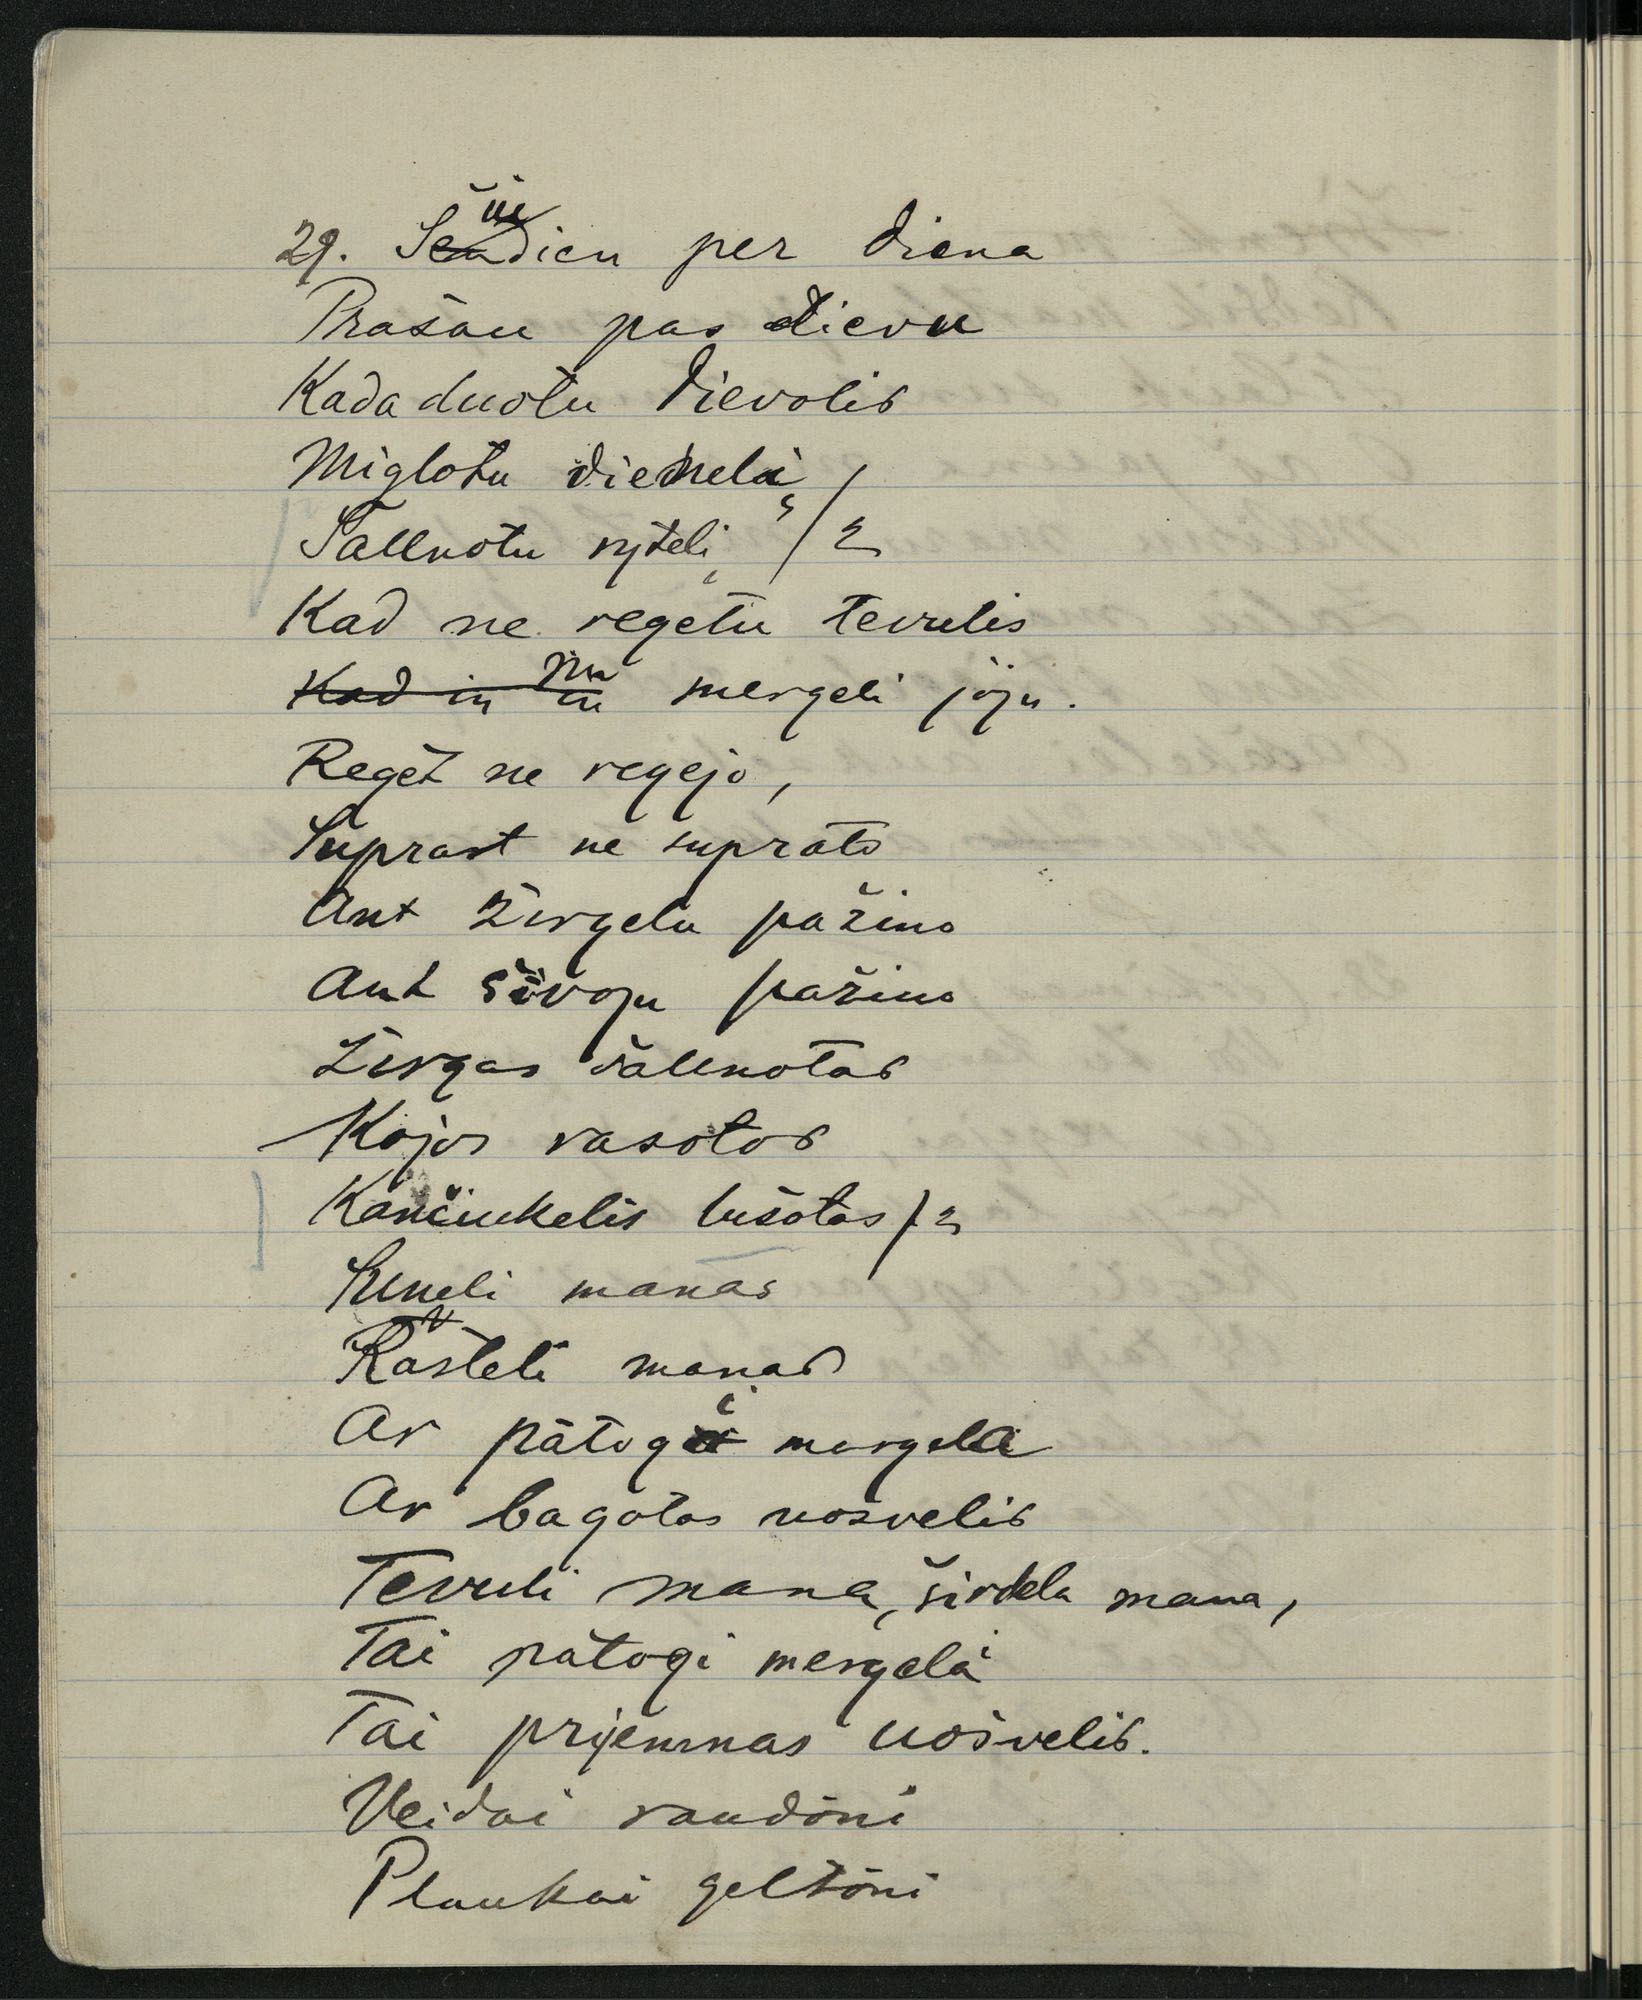 29. Šiądien per diena
Prašau pas dievu
Kada duotu Dievolis
Miglotu dienela /
Šallnotu rýteli / 2
Kad ne regetu tevulis
Pas mergeli jöju.
Reget ne regejo,
Suprast ne suprato
Ant žirgelu pažino
Ant široju pažino
Žirgas šallnotas
Kojos rasotos
Kančiukelis lušotas / 2
Suneli manas
Rašteli manas
Ar pātogi mergela
Ar bagotas uošvelis
Tevuli mana, širdela mana,
Tai pātogi mergela
Tai prijemnas uošvelis.
Veidai raudōni
Plaukai geltōni